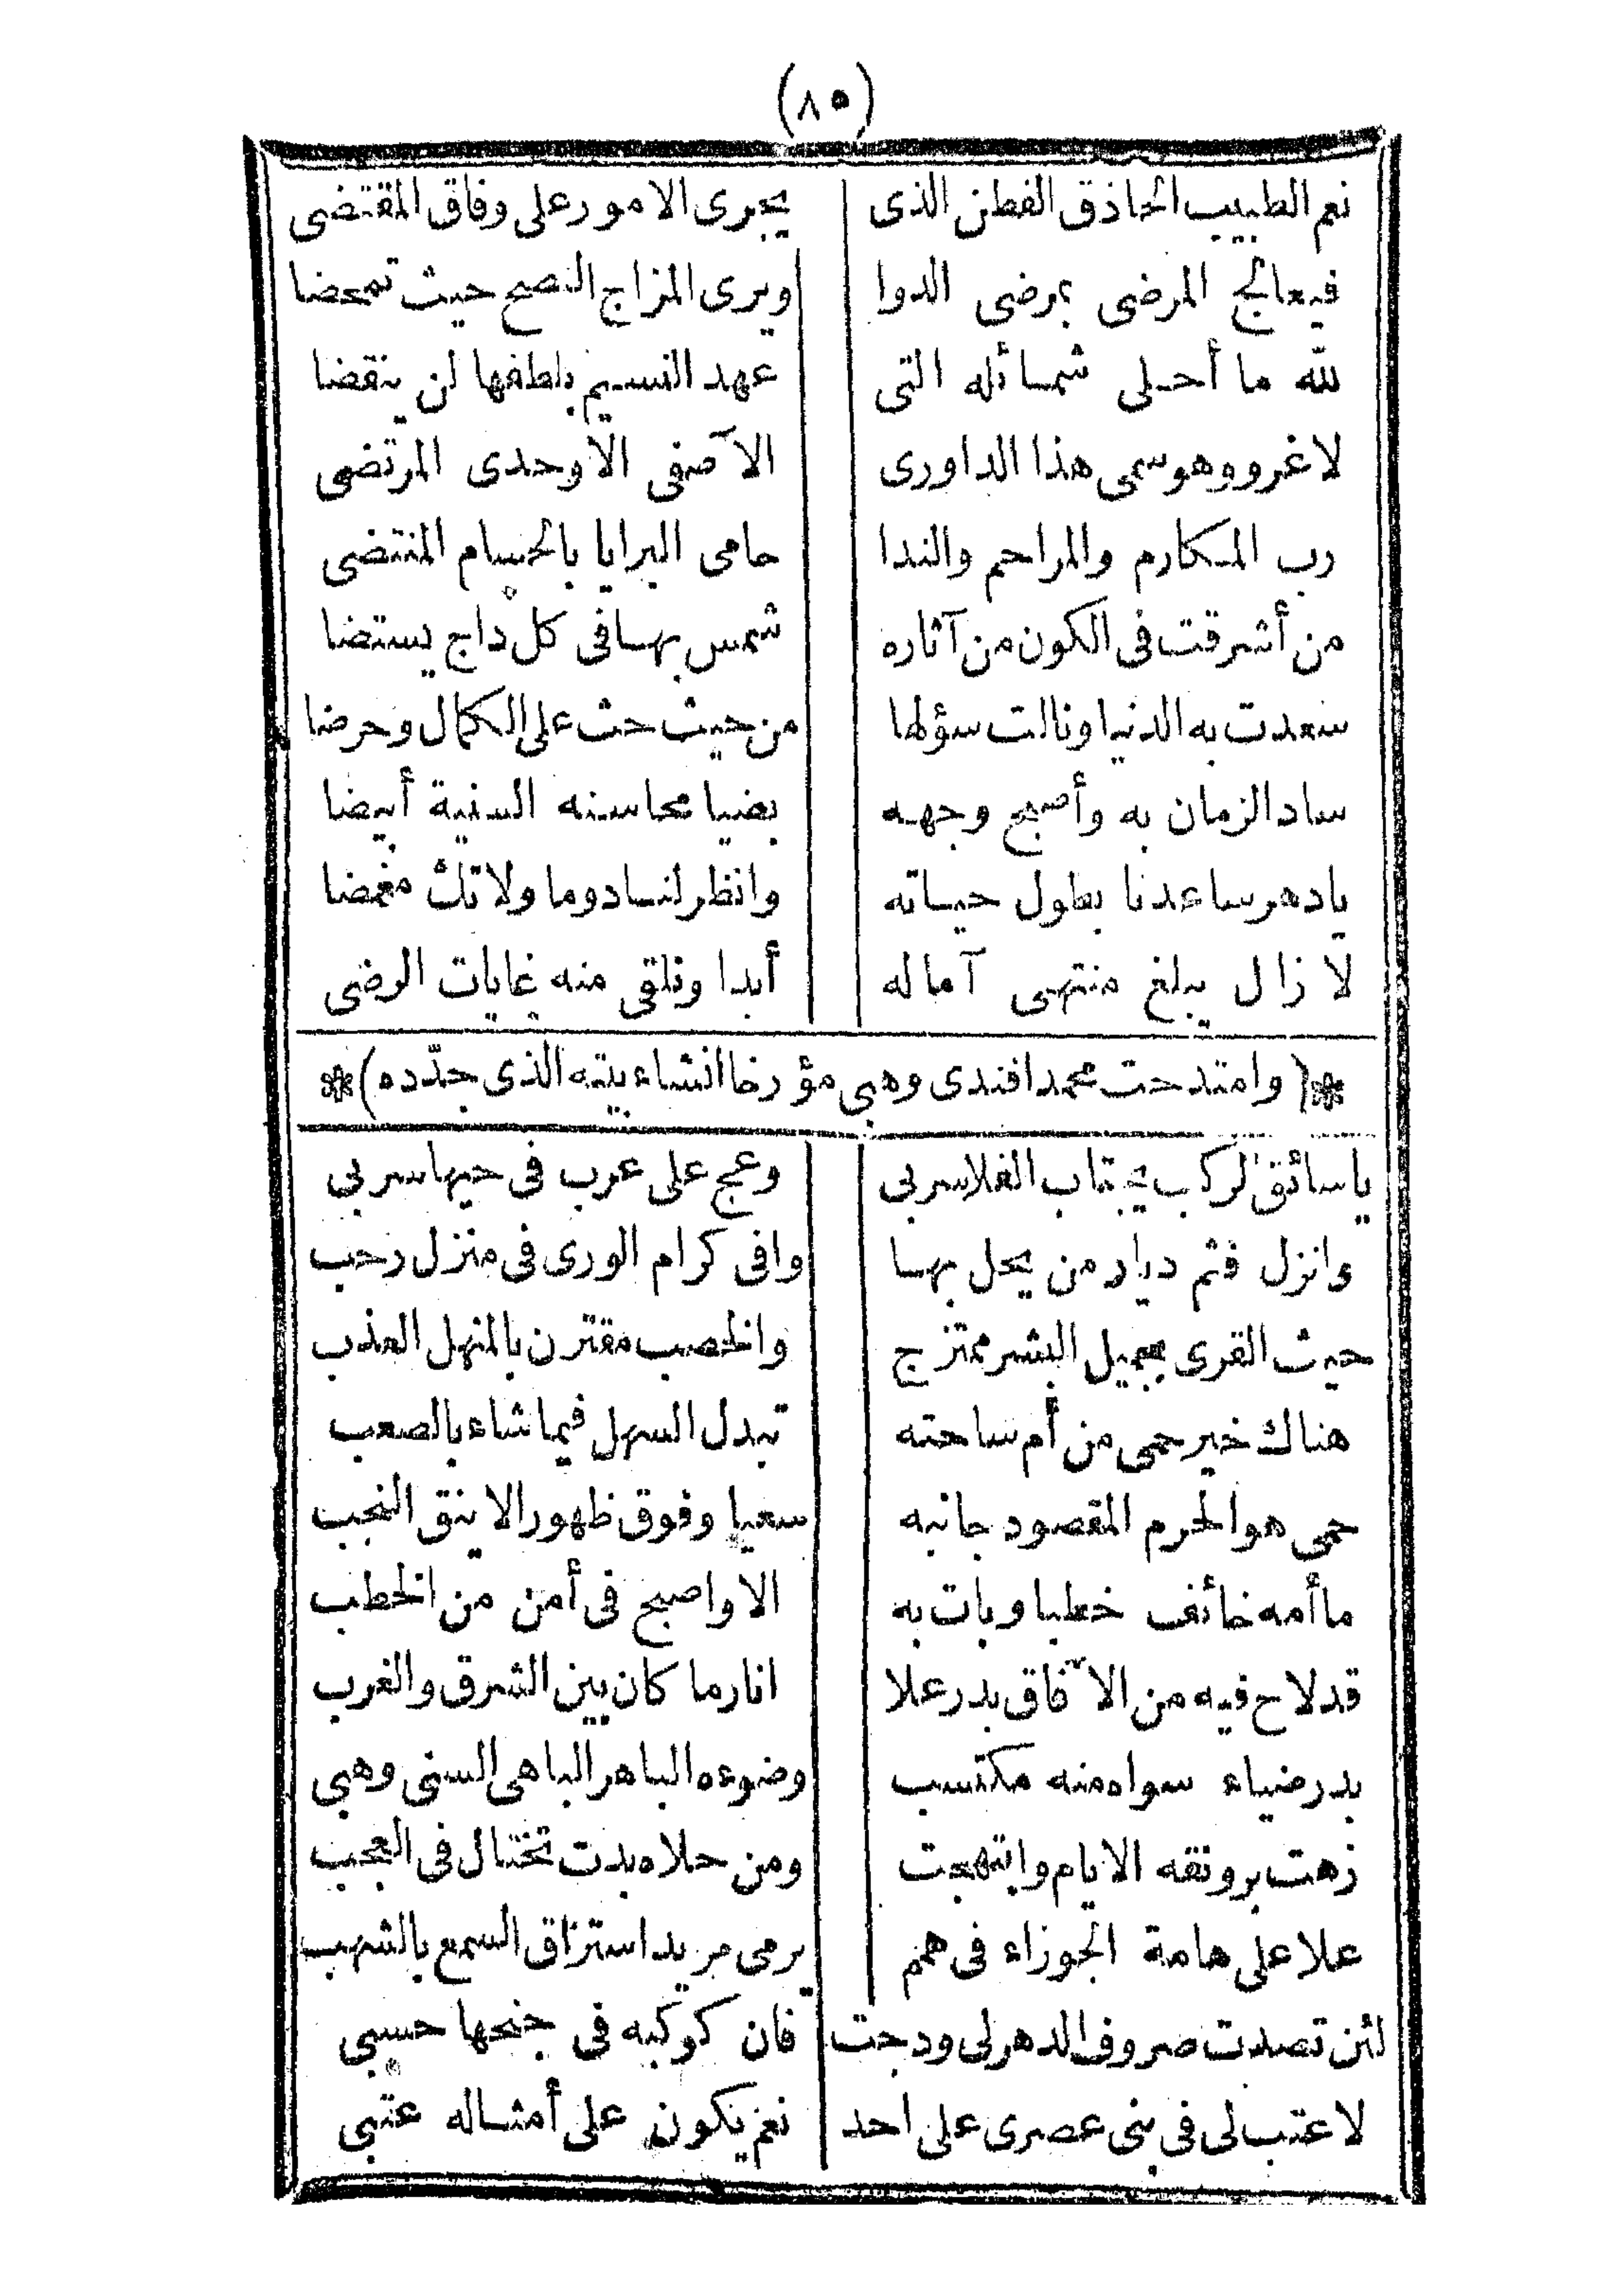 (٨٥)
نعم الطبيب الحاذق الفطن الذى يجرى الامور على وفاق المقتضى
فيعالج المرضى بمرضى الدوا ويرى المزاج النصح حيث تمحضا
لله ما أحلى شمائله التى عهد النسيم بلطفها لن ينقضا
لا غرو وهو سمى هذا الداورى الآصفى الاوحدى المرتضى
رب المكارم والمراحم والندا حامى البرايا بالحسام المنتضى
من أشرقت فى الكون من آثاره شمس بها فى كل داج يستضا
سعدت به الدنيا ونالت سؤلها من حيث حث على الكمال وحرضا
ساد الزمان به وأصبح وجهه بضيا محاسنه السنية أبيضا
يا دهر ساعدنا بطول حياته وانظر لنا دوما ولا تك مغمضا
لا زال يبلغ منتهى آماله أبدا ونلقى منه غايات الرضى
*(وامتدحت محمد افندى وهبى مؤرخا انشاء بيته الذى جدّده)*
يا سائق الركب يجتاب الفلا سر بى وعج على عرب فى حيها سربى
وانزل فثم ديار من يحل بها وافى كرام الورى فى منزل رحب
حيث القرى بجميل البشر ممتزج والخصب مقترن بالمنهل العذب
هناك خير حمى من أم ساحته تبدل السهل فيما شاء بالصعب
حمى هو الحرم المقصود جانبه سعيا وفوق ظهور الاينق النجب
ما أمه خائف خطبا وبات به الا واصبح فى أمن من الخطب
قد لاح فيه من الآفاق بدر علا انار ما كان بين الشرق والغرب
بدر ضياء سواه منه مكتسب وضوءه الباهر الباهى السنى وهبى
زهت برونقه الايام وابتهجت ومن حلاه بدت تختال فى العجب
علا على هامة الجوزاء فى همم يرمى مريد استراق السمع بالشهب
لئن تصدت صروف الدهر لى ودجت فان كوكبه فى جنحها حسبى
لا عتب لى فى بنى عصرى على احد نعم يكون على أمثاله عتبى